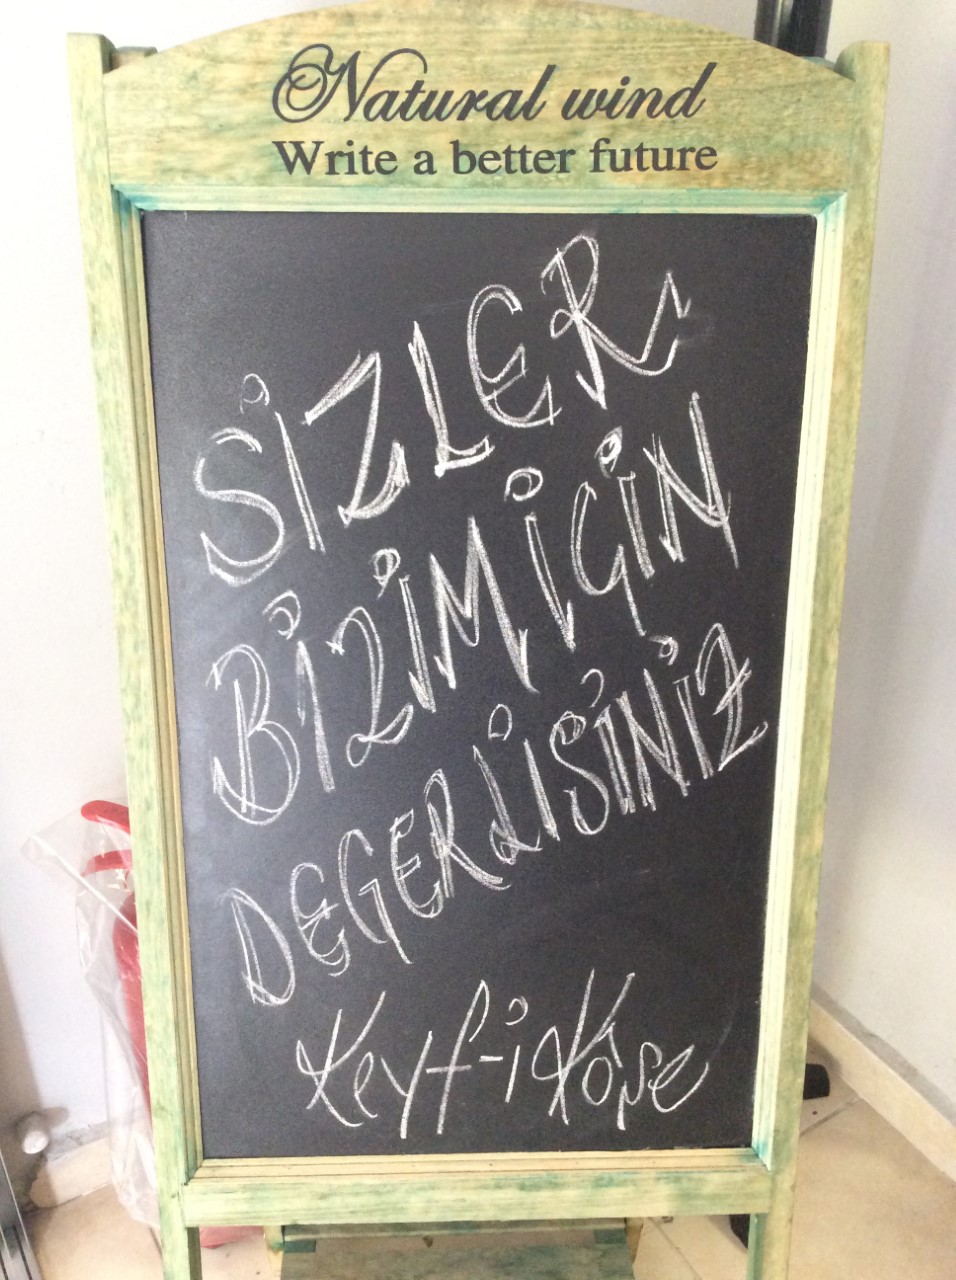 Natural wind
Write a better future
SİZLER
BİZİM İÇİN
DEGERLİSİNİZ
Keyf-i Köşe